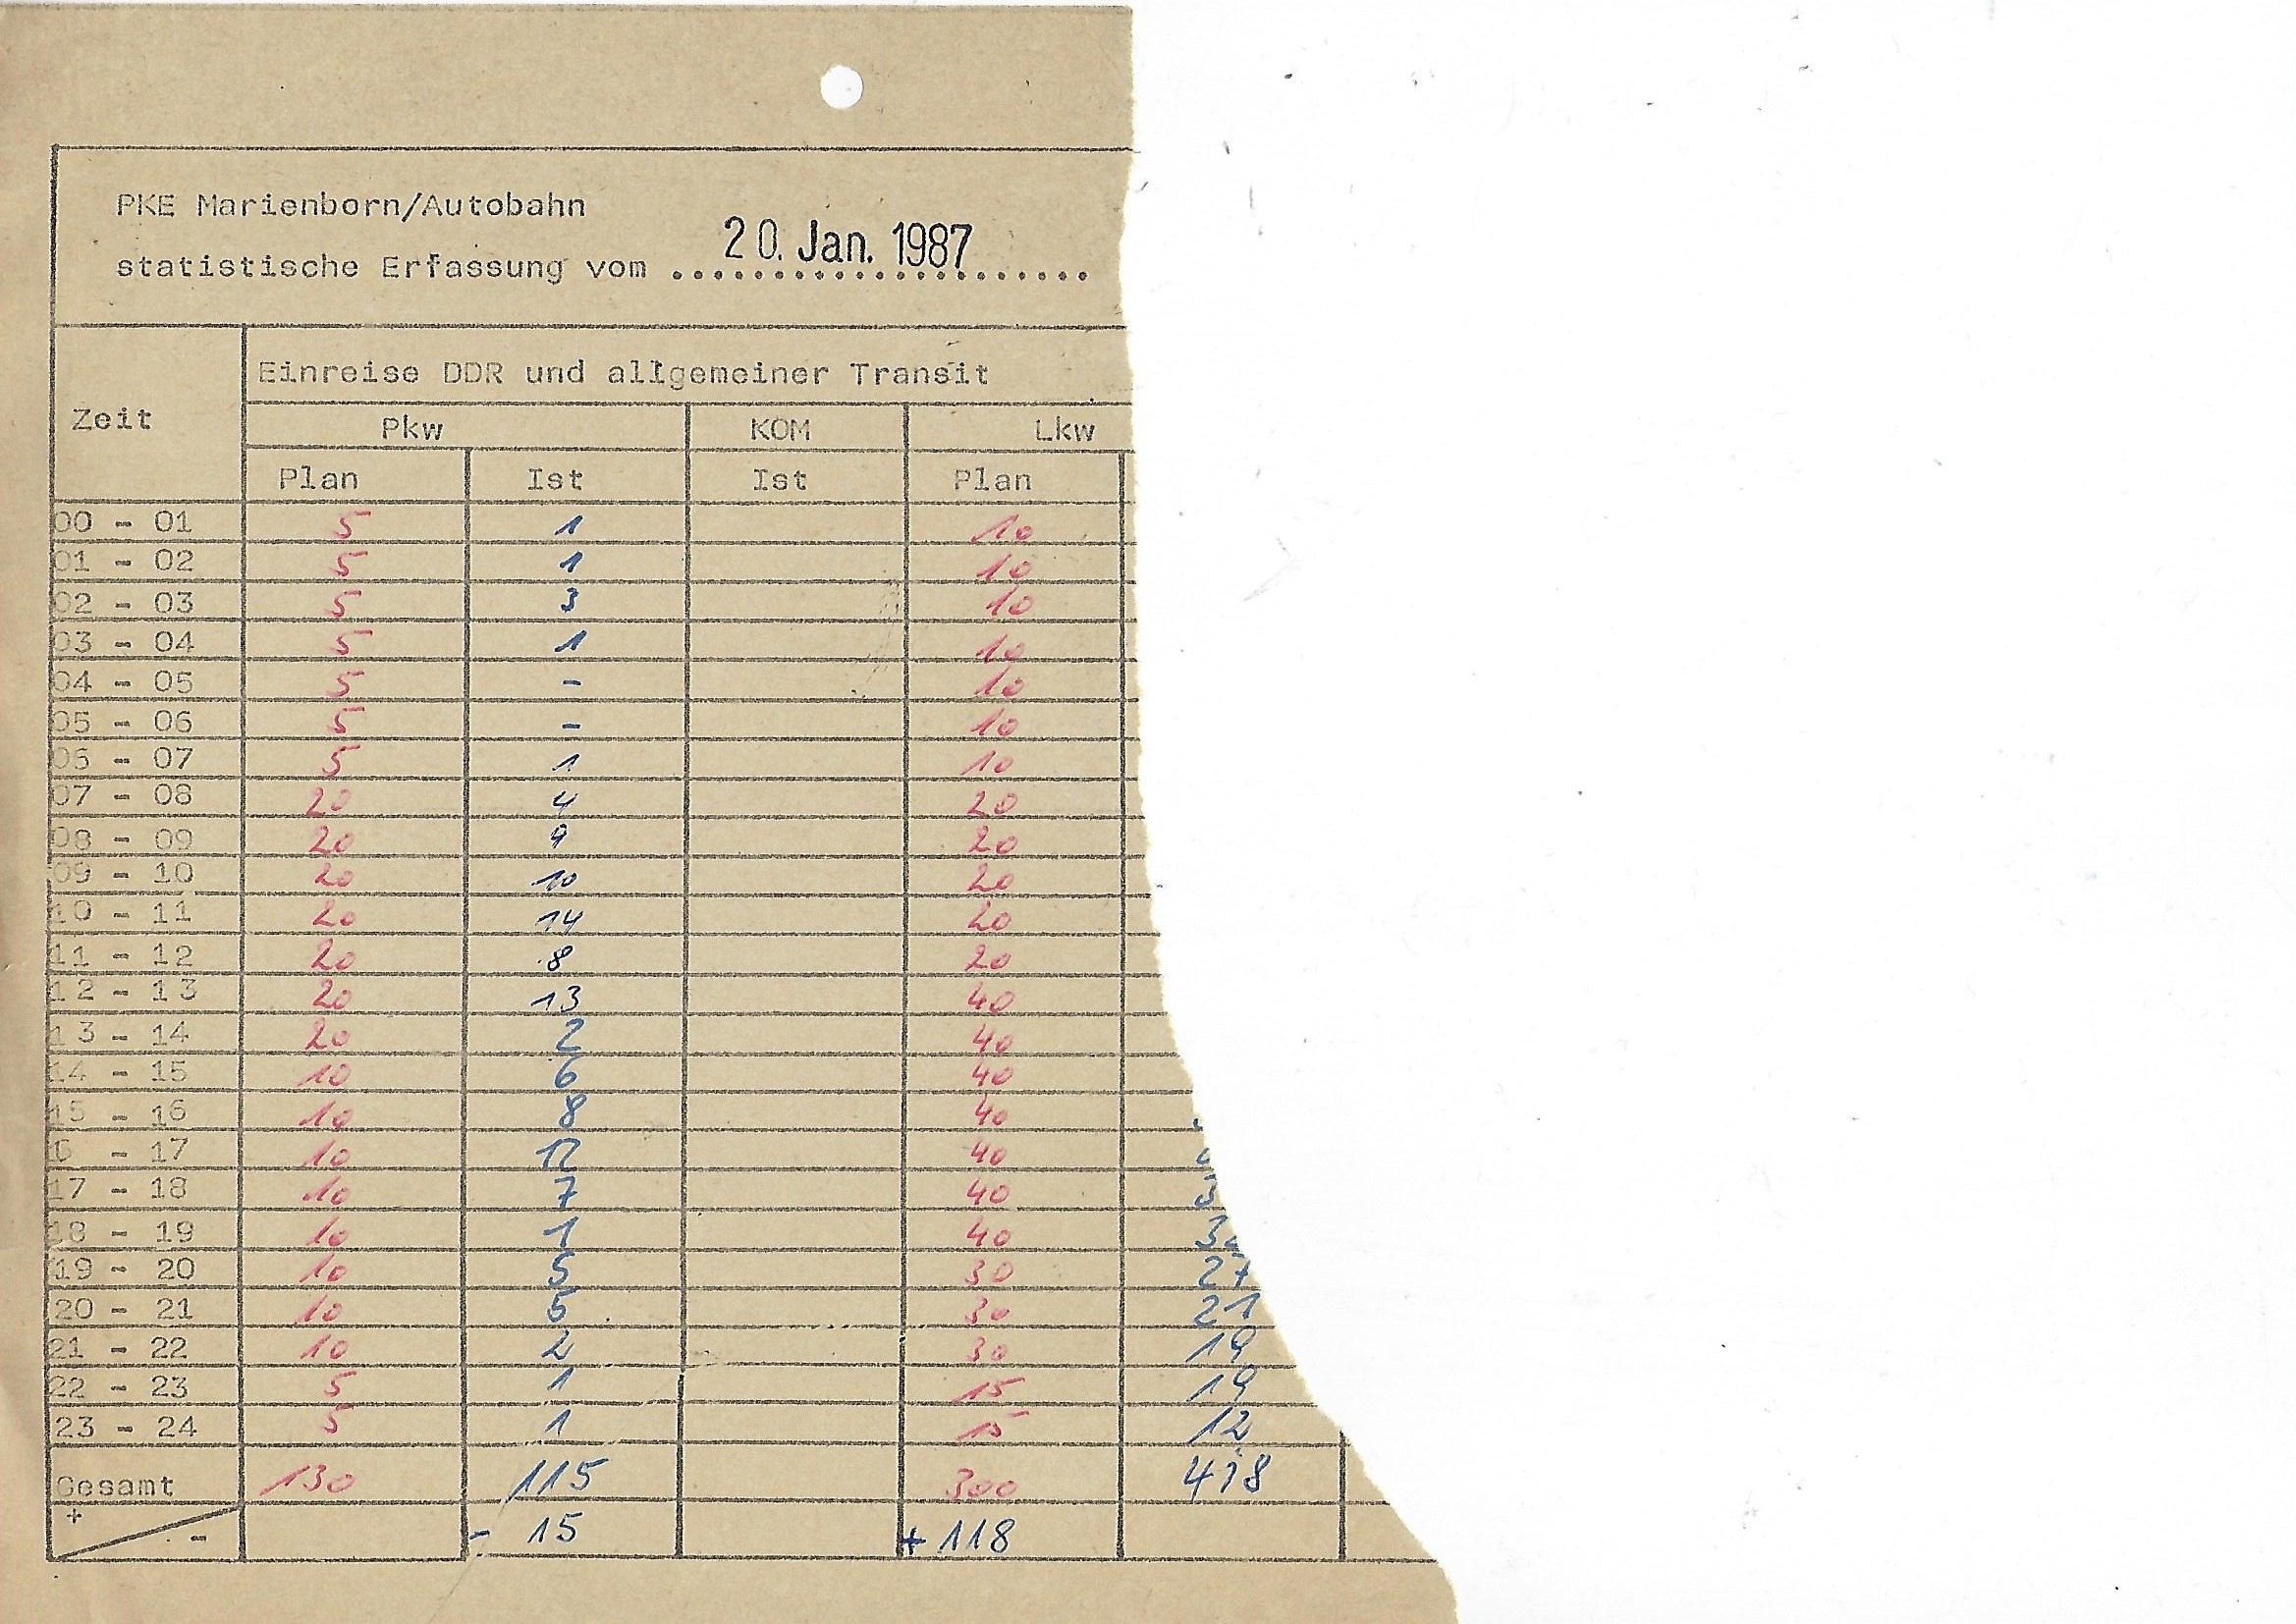 PKE Marienborn/Autobahn
20. Jan. 1987
statistische Erfassung vom ......................
Einreise DDR und allgemeiner Transit
Zeit
Pkw KOM Lkw
Plan Ist Ist Plan
00 - 01 5 1 10
01 - 02 5 1 10
02 - 03 5 3 10
03 - 04 5 1 10
04 - 05 5 - 10
05 - 06 5 - 10
06 - 07 5 1 10
07 - 08 20 4 20
08 - 09 20 9 20
09 - 10 20 10 20
10 - 11 20 14 20
11 - 12 20 8 20
12 - 13 20 13 40
13 - 14 20 2 40
14 - 15 10 6 40
15 - 16 10 8 40
6 - 17 10 12 40
17 - 18 10 7 40
18 - 19 10 1 40
19 - 20 10 5 30 27
20 - 21 10 5 30 21
21 - 22 10 2 30 19
22 - 23 5 1 15 19
23 - 24 5 1 15 12
Gesamt 130 115 300 418
+ - - 15 + 118